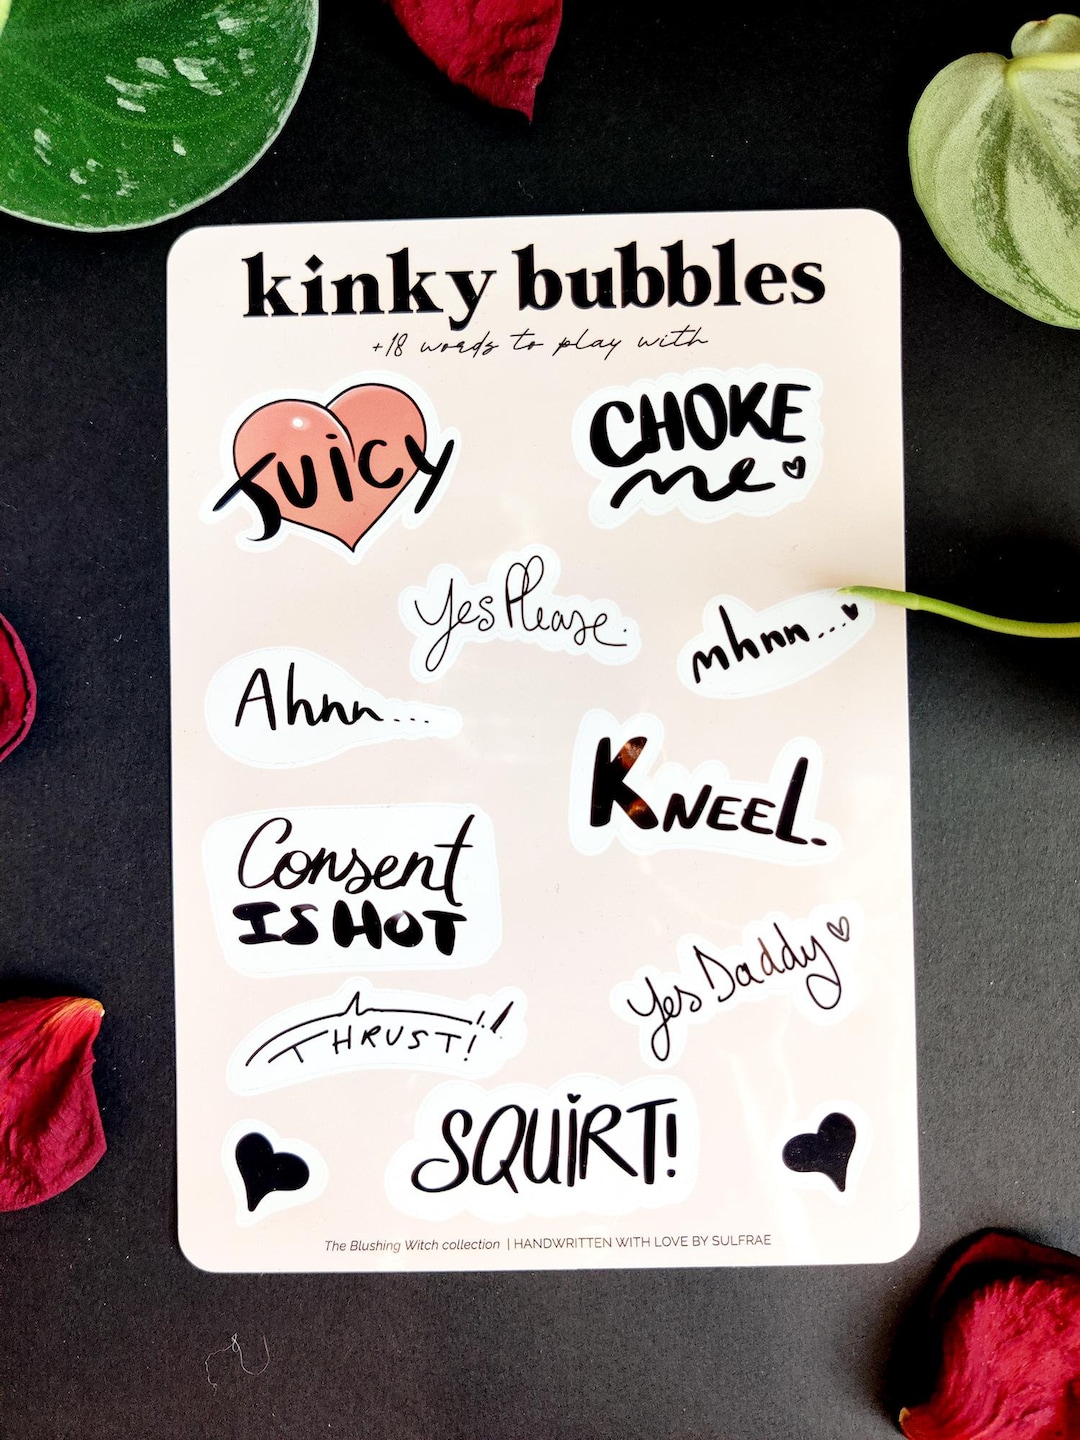 kinky bubbles
+18 words to play with
JUiCY
CHOKE
me
Yes Please.
mhnn...
Ahnn...
KNEEL.
Consent
IS HOT
Yes Daddy
THRUST!!!
SQUiRT!
The Blushing Witch collection | HANDWRITTEN WITH LOVE BY SULFRAE